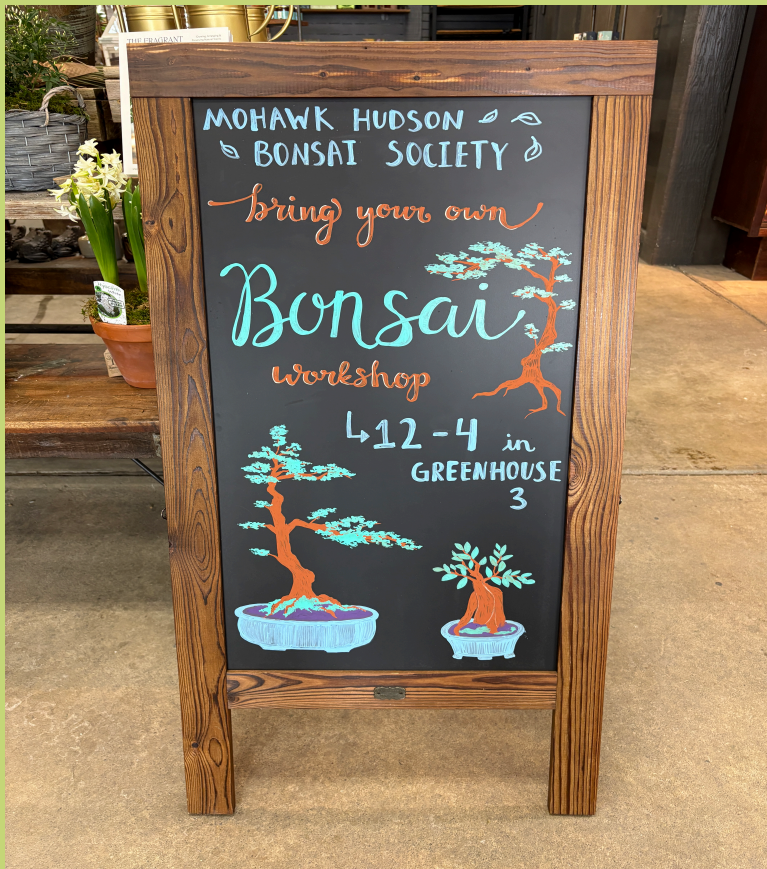 THE FRAGRANT
MOHAWK HUDSON
BONSAI SOCIETY
bring your own
Bonsai
workshop
↳12-4 in
GREENHOUSE
3